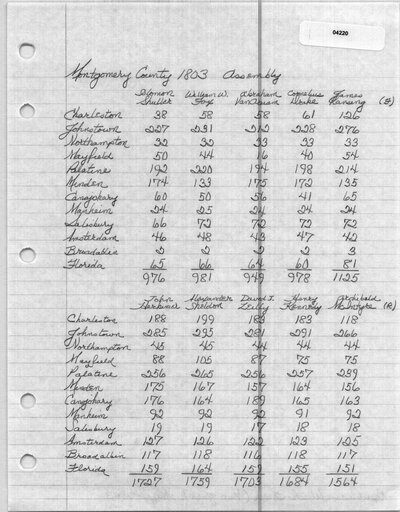 04220
Montgomery County 1803 Assembly
Solomon William W. Abraham Cornelius James
Shuller Fox Drake Lansing (B)
Charleston 38 58 58 61 126
Johnstown 227 231 212 228 276
Northampton 32 32 33 33 33
Mayfield 50 44 16 40 54
Palatine 192 220 194 198 214
Minden 174 133 175 172 135
Canajohary 60 50 56 41 65
Manheim 24 25 24 24 24
Salisbury 66 72 72 72 72
Amsterdam 46 48 43 47 42
Broadalbin 2 2 2 2 3
Florida 65 66 64 60 81
976 981 949 978 1125
John Alexander David I. Henry Archibald
Herkimer Sheldon Zeily Kennedy McIntyre (R)
Charleston 188 199 183 183 118
Johnstown 285 295 281 291 266
Northampton 45 45 44 44 44
Mayfield 88 105 87 75 75
Palatine 256 265 256 257 239
Minden 175 167 157 164 156
Canajohary 176 164 189 165 163
Manheim 92 92 92 91 92
Salisbury 19 19 17 18 18
Amsterdam 127 126 122 123 125
Broadalbin 117 118 116 118 117
Florida 159 164 159 155 151
1727 1759 1703 1684 1564